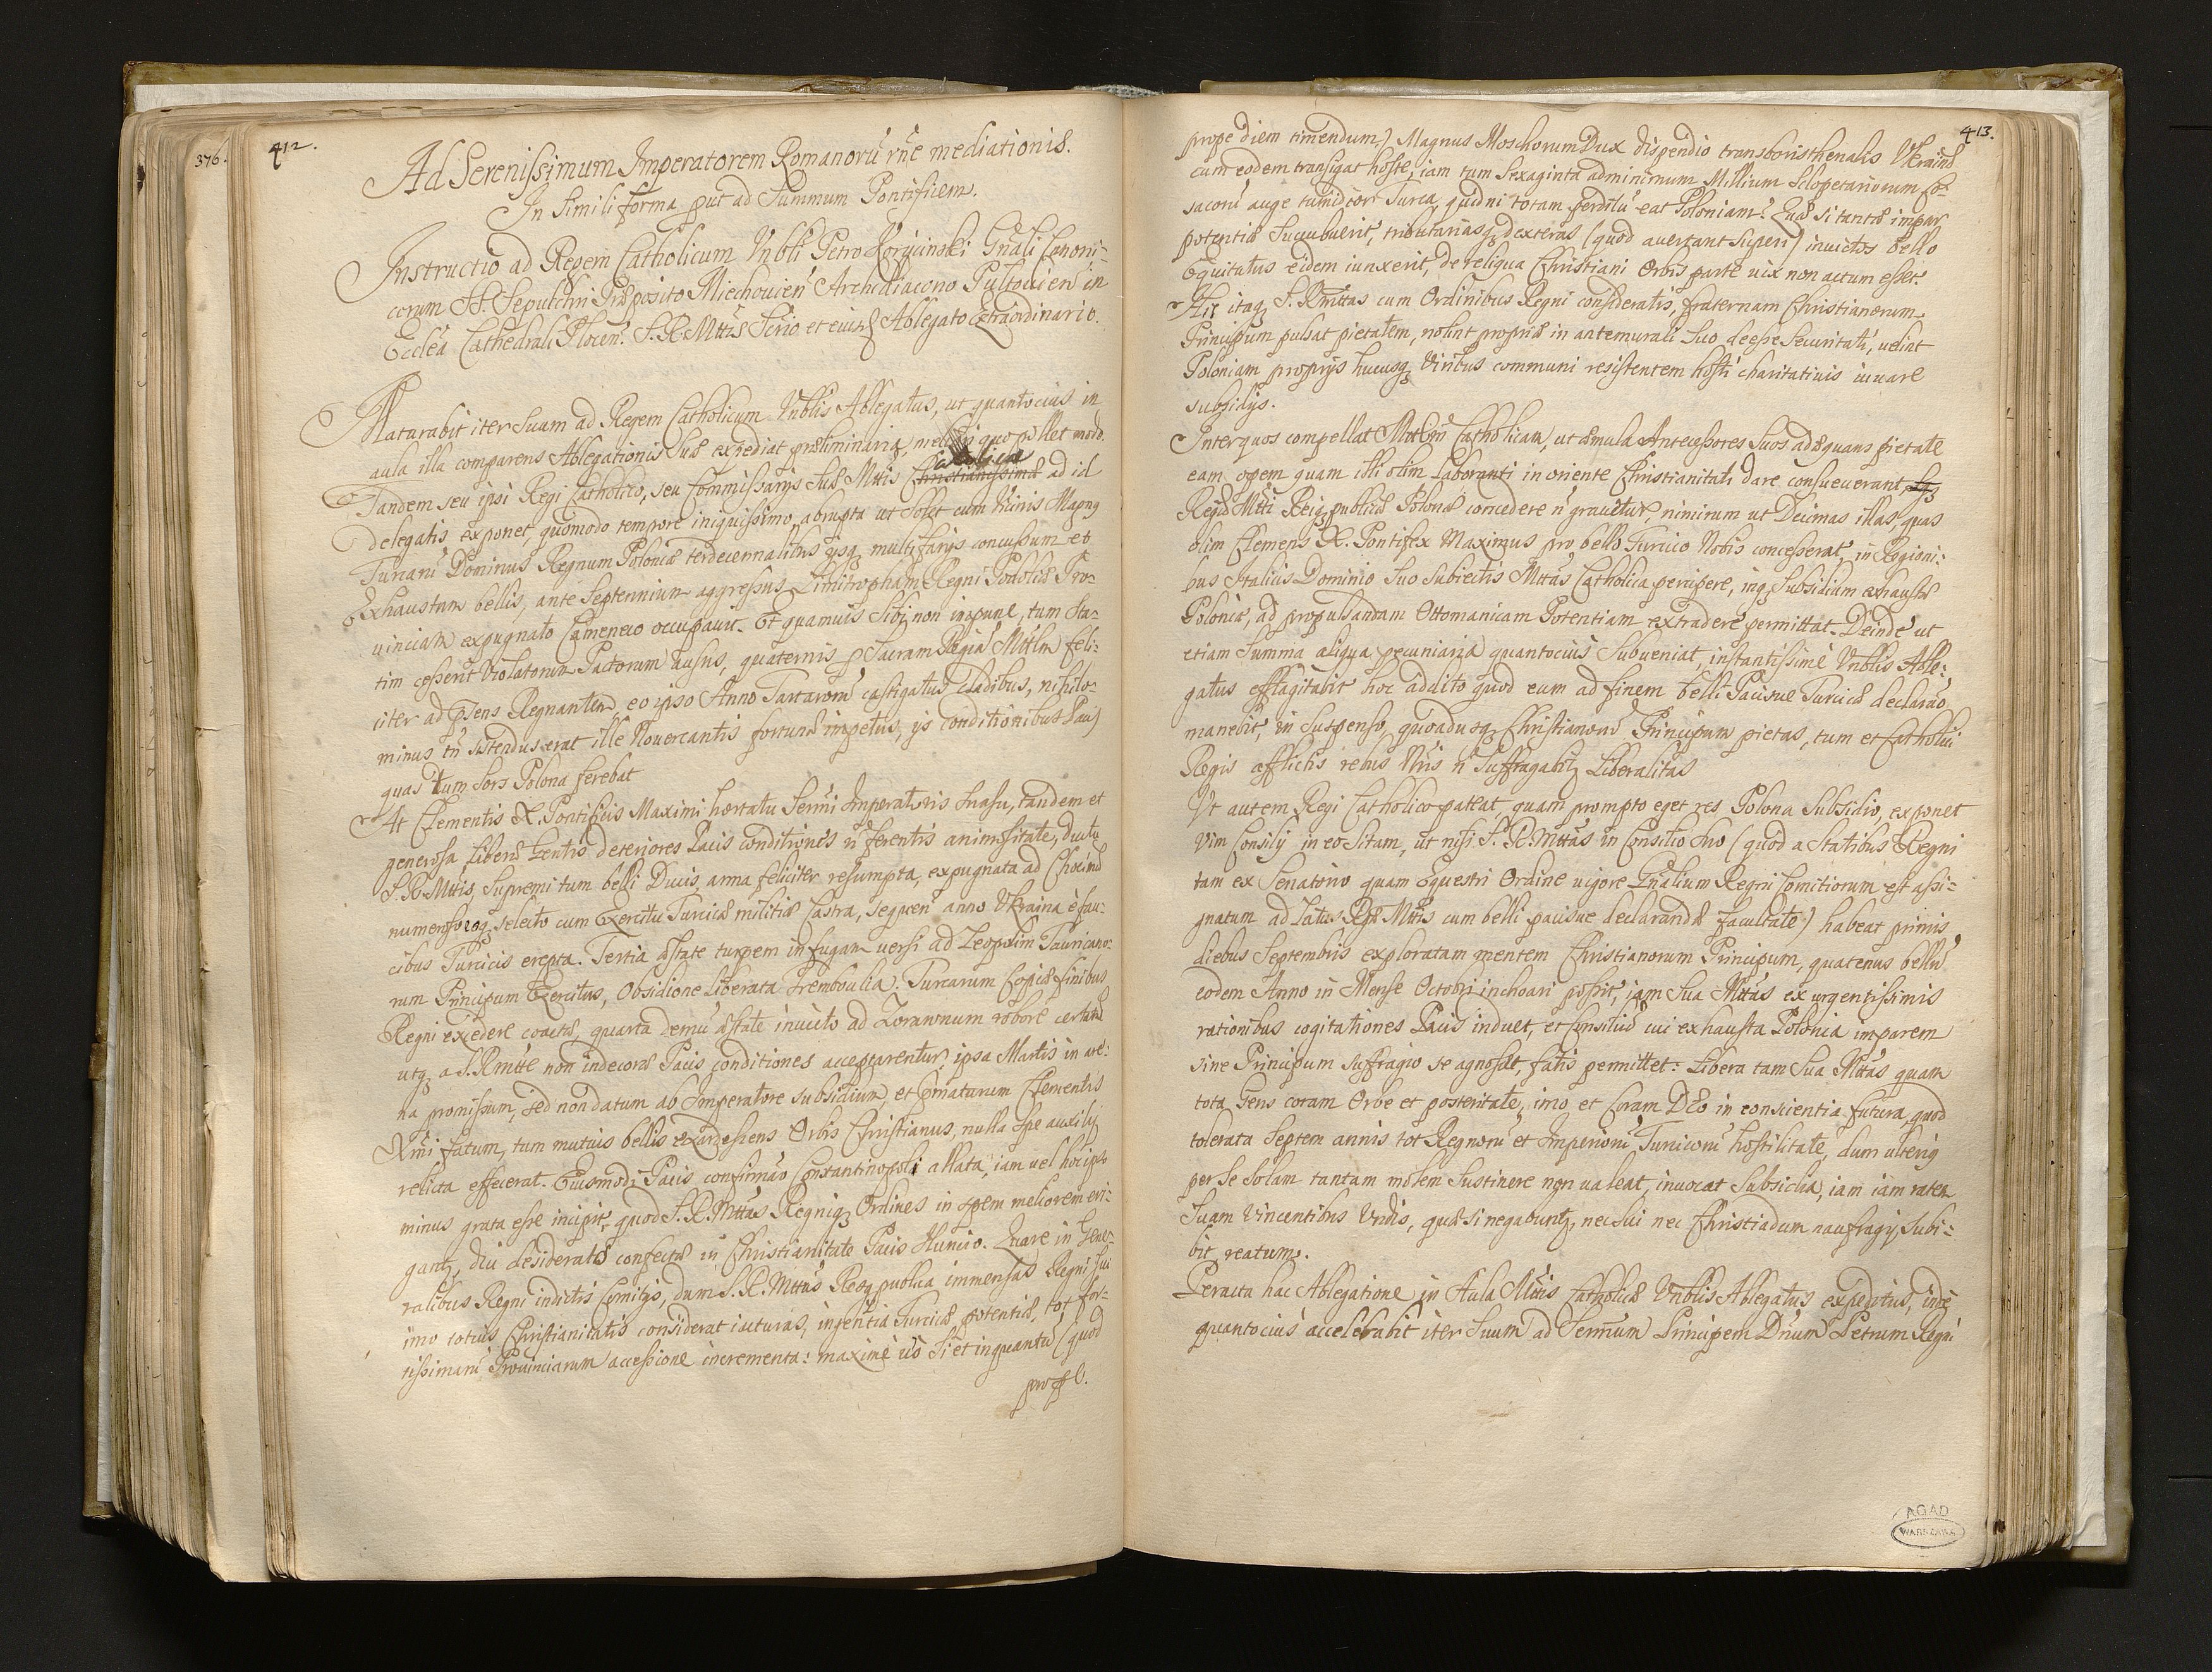 376.
412.
Ad Serenissimum Imperatorem Romanorũ rñe mediationis.
In Simili forma put ad Summum Pontificem.
Instructio ad Regem Catholicum Vnbli Petro Koryciński Gñali Canoni-
corum SS. Sepulchri Præposito Miechouień Archidiacono Pultouień in
Ecclẽa Cathedrali Plocen: S. R. Mttis Scrio et eiusd Ablegato Extraordinario.
Maturabit iter Suum ad Regem Catholicum Vnblis Ablegatus, ut quantocius in
aula illa comparens Ablegationis Suæ expediat præliminaria, meliori quo pollet modo.
Tandem seu ipsi Regi Catholico, seu Commissarys Suæ Mttis Christianissimæ Catholicæ ad id
delegatis exponet, quomodo tempore iniquissimo, abrupta ut Solet cum Vicinis Magnꝯ
Turcarũ Dominus Regnum Poloniæ terdecennalibus ysqꝫ multifarys concussum et
Exhaustum bellis, ante Septennium aggressus Limitropham Regni Podoliæ Pro-
uinciam expugnato Cameneco occupauit. Et quamuis Sibi non impune, tum Sta-
tim cesserit Violatorum Pactorum ausus, quaternis p Sacram Regiã Mttem feli-
citer ad psens Regnantem eo ipso Anno Tartarorũ castigatus cladibus, nihilo-
minus tñ sistendus erat ille Nouercantis fortunæ impetus, ys conditionibus Pacis
quas tum Sors Polona ferebat
At Clementis X. Pontificis Maximi hortatu Sermi Imperatoris Suasu, tandem et
generosa, Liberæ Gentis deteriores Pacis conditiones ñ ferentis animositate, ductu
S. R. Mttis, Supremi tum belli Ducis, arma feliciter resumpta, expugnata ad Chocimũ
numerosoqꝫ selecto cum Exercitu Turcicæ militiæ Castra, sequen anno Vkraina è fau-
cibus Turcicis erepta. Tertia æstate turpem in fugam uersi ad Leopolim Tauricano-
rum Principum Exercitus, Obsidione liberata Trembowlia. Turcarum Copiæ finibus
Regni excedere coactæ, quarta demũ æstate inuicto ad Zorawnum robore certatũ
utqꝫ a S. R. Mtte non indecoræ Pacis conditiones acceptarentur, ipsa Martis in are-
na promissum, sed non datum ab Imperatore subsidium, et pmaturum Clementis
Xmi fatum, tum mutuis bellis exardescens Orbis Christianus, nulla Spe auxily
relicta effecerat. Eiusmodi Pacis confirmão Constantinopoli allata, iam uel hoc ipso
minus grata esse incipit, quod S. R. Mttas Regniqꝫ Ordines in Spem meliorem eri-
gant, diu desideratæ confectæ in Christianitate Pacis Nuncio. Quare in Gene-
ralibus Regni indictis Comitys, dum S. R. Mttas Reiqꝫ publica immensas Regni Sui
imo totius Christianitatis considerat iacturas, ingentia Turcicæ potentiæ, tot for-
tissimarũ Prouinciarum accessione incrementa: maximè uõ Si et inquantũ (quod
prope.
413.
prope diem timendum) Magnus Moschorum Dux dispendio transboristhenalis Vkrainæ
cum eodem transigat hoste, iam tum Sexaginta ad minimum Millium Sclopetariorum Co-
sacorũ auge tumidior Turca, quidni totam perditũ eat Poloniam? Quæ si tantæ impar
potentiæ Sucubuerit, tributariasqꝫ dexteras (quod auertant Superi) inuictos bello
Equitatus eidem iunxerit, de reliqua Christiani Orbis parte uix non actum esset.
His itaqꝫ S. R. Mttas cum Ordinibus Regni consideratis, fraternam Christianorum
Principum pulsat pietatem, nolint propriæ in antemurali Suo deesse Securitati, uelint
Poloniam proprys hucusqꝫ Viribus communi resistentem hosti charitatiuis iuuare
subsidys.
Inter quos compellat Mttem Catholicam, ut æmula Antecessores Suos adæquans pietate
eam opem quam illi olim laboranti in oriente Christianitati dare consueuerant,
Regiæ Mtti Reiqꝫ publicæ Polonæ concedere ñ grauetur, nimirum ut Decimas illas, quas
olim Clemens X. Pontifex Maximus pro bello Turcico Nobis concesserat, in Regioni-
bus Italicis Dominio Suo Subiectis Mttas Catholica percipere, inqꝫ Subsidium exhaustæ
Poloniæ, ad propulsandam Ottomanicam Potentiam extradere permittat. Deinde ut
etiam Summa aliqua pecuniaria quantocius Subueniat, instantissimè Vnblis Able-
gatus efflagitabit hoc addito quod eum ad finem belli Pacisue Turcicæ declarão
manebit, in Suspenso, quoadusqꝫ Christianorũ Principum pietas, tum et Catholici
Regis afflictis rebus Nris ñ Suffragabitꝫ Liberalitas
Vt autem Regi Catholico pateat, quam prompto eget res Polona Subsidio, exponet
Vim Consily in eo Sitam, ut nisi S. R. Mttas in Consilio Suo (quod a Statibus Regni
tam ex Senatorio quam Equestri Ordine uigore Gñalium Regni Comitiorum est assi-
gnatum ad Latus Regiæ Mttis cum belli pacisue declarandæ facultate) habeat primis
diebus Septembris exploratam mentem Christianorum Principum, quatenus bellũ
eodem Anno in Mense Octobri inchoari possit, iam Sua Mttas ex urgentissimis
rationibus cogitationes Pacis induet, et Consiliũ cui exhausta Polonia imparem
sine Principum suffragio se agnoscit, fatis permittet: Libera tam Sua Mttas quam
tota Gens coram Orbe et posteritate, imo et Coram DEo in conscientia futura, quod
tolerata Septem annis tot Regnorũ et Imperiorũ Turcicorũ hostilitate, dum ulteriꝯ
per Se solam tantam molem Sustinere non ualeat, inuocat Subsidia, iam iam ratem
Suam Vincentibus Vndis, quæ si negabuntꝫ, nec Sui nec Christiadum naufragy Subi-
bit reatum.
Peracta hac Ablegatione in Aula Mttis Catholicæ Vnblis Ablegatus expeditus, inde
quantocius accelerabit iter Suum ad Sermum Principem Dnum Petrum Regni
AGAD
WARSZAWA